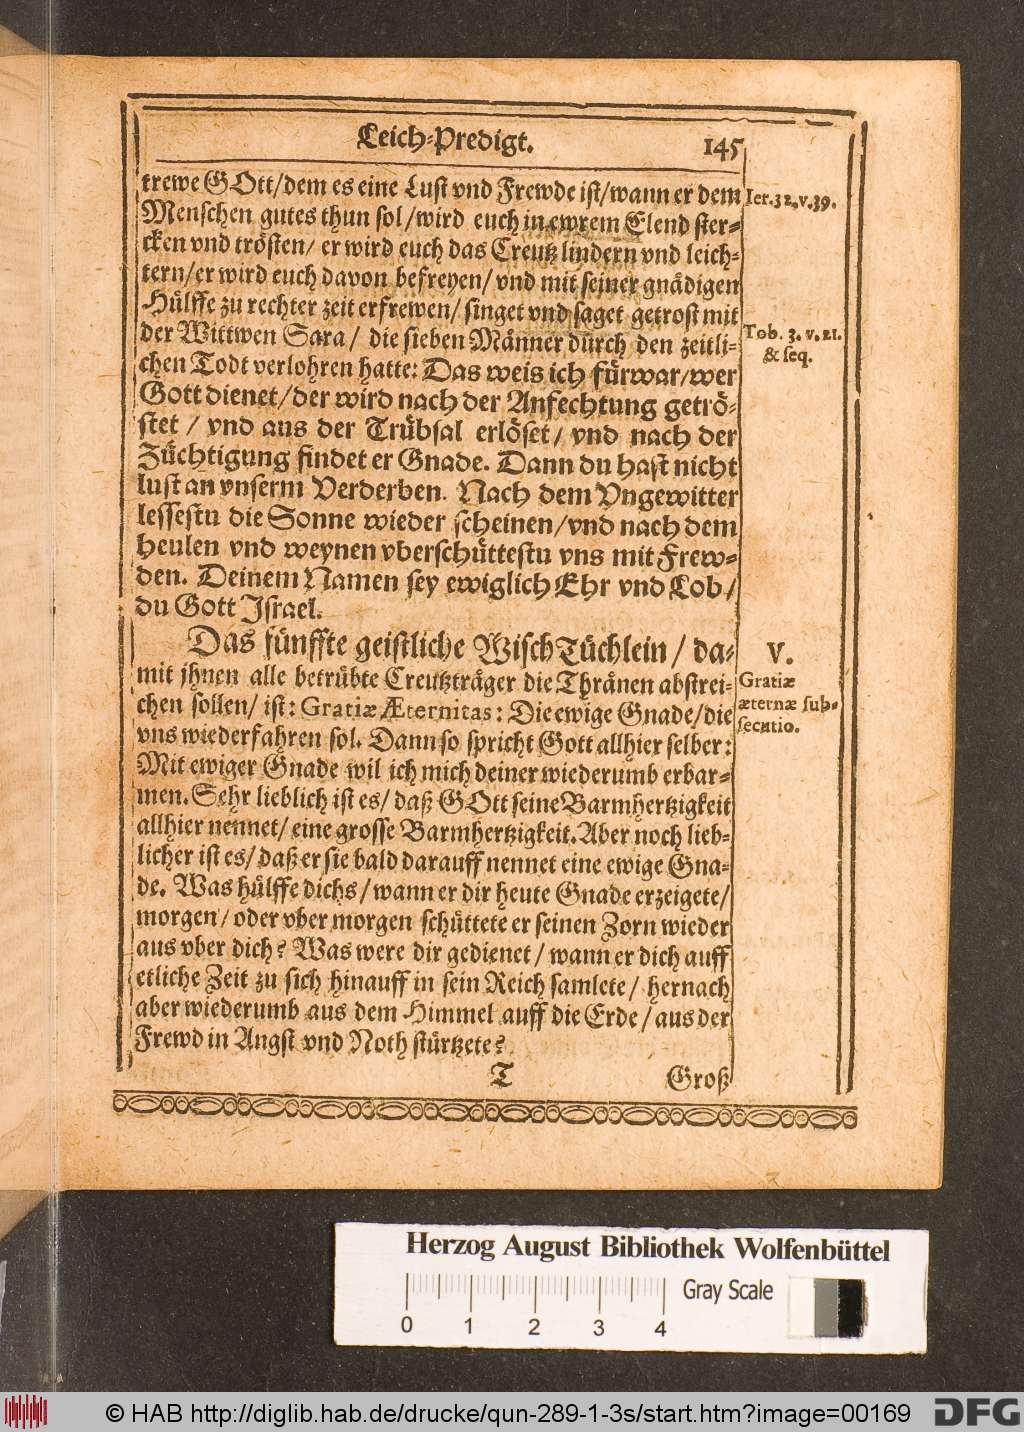 Leich-Predigt. 145
trewe GOtt/dem es eine Lust vnd Frewde ist/wann er dem
Ier.32.v.39.
Menschen gutes thun sol/wird euch in ewrem Elend ster-
cken vnd trösten/ er wird euch das Creutz lindern vnd leich-
tern/er wird euch davon befreyen/ vnd mit seiner gnädigen
Hülffe zu rechter zeit erfrewen/ singet vnd saget getrost mit
der Wittwen Sara/ die sieben Männer durch den zeitli-
Tob. 3. v. 21.
& seq.
chen Todt verlohren hatte: Das weis ich fürwar/wer
Gott dienet/der wird nach der Anfechtung getrö-
stet / vnd aus der Trübsal erlöset/ vnd nach der
Züchtigung findet er Gnade. Dann du hast nicht
lust an vnserm Verderben. Nach dem Vngewitter
lessestu die Sonne wieder scheinen/vnd nach dem
heulen vnd weynen vberschüttestu vns mit Frew-
den. Deinem Namen sey ewiglich Ehr vnd Lob/
du Gott Israel.
Das fünffte geistliche WischTüchlein / da-
V.
mit jhnen alle betrübte Creutzträger die Thränen abstrei-
Gratiæ
æternæ sub-
secutio.
chen sollen/ ist: Gratiæ Æternitas: Die ewige Gnade/die
vns wiederfahren sol. Dann so spricht Gott allhier selber:
Mit ewiger Gnade wil ich mich deiner wiederumb erbar-
men. Sehr lieblich ist es/ daß GOtt seine Barmhertzigkeit
allhier nennet/ eine grosse Barmhertzigkeit. Aber noch lieb-
licher ist es/ daß er sie bald darauff nennet eine ewige Gna-
de. Was hülffe dichs/ wann er dir heute Gnade erzeigete/
morgen/ oder vber morgen schüttete er seinen Zorn wieder
aus vber dich? Was were dir gedienet/ wann er dich auff
etliche Zeit zu sich hinauff in sein Reich samlete/ hernach
aber wiederumb aus dem Himmel auff die Erde/ aus der
Frewd in Angst vnd Noth stürtzete?
T Groß
Herzog August Bibliothek Wolfenbüttel
Gray Scale
0 1 2 3 4
© HAB http://diglib.hab.de/drucke/qun-289-1-3s/start.htm?image=00169
DFG